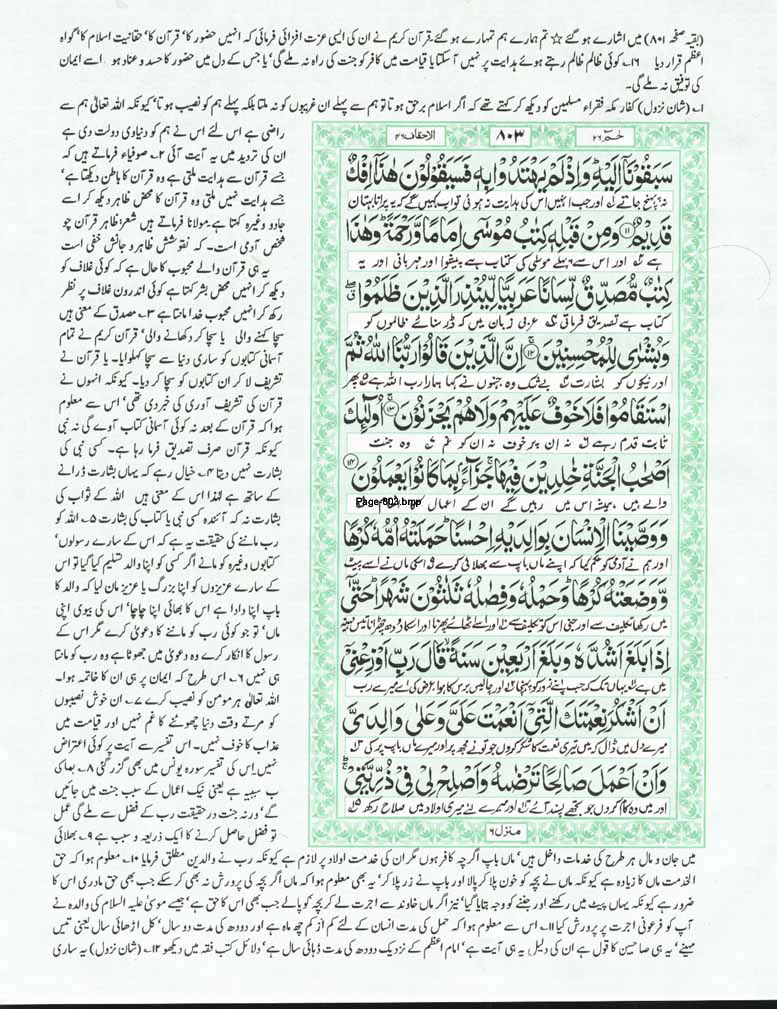 (بقیہ صفحہ ۸۰۱) میں اشارے ہو گئے ☆ تم ہمارے ہم تمہارے ہو گئے۔ قرآن کریم نے ان کی ایسی عزت افزائی فرمائی کہ انہیں حضور کا' قرآن کا' حقانیت اسلام کا' گواہ
اعظم قرار دیا ۱۶۔ کوئی ظالم ظالم رہتے ہوئے ہدایت پر نہیں آسکتا یا قیامت میں کافر کو جنت کی راہ نہ ملے گی' یا جس کے دل میں حضور کا حسد و عناد ہو اسے ایمان
کی توفیق نہ ملے گی۔
۱۔ (شان نزول) کفار مکہ فقراء مسلمین کو دیکھ کر کہتے تھے کہ اگر اسلام برحق ہوتا تو ہم سے پہلے ان غریبوں کو نہ ملتا بلکہ پہلے ہم کو نصیب ہوتا' کیونکہ اللہ تعالٰی ہم سے
حٰمٓ ۲۶
۸۰۳
الاحقاف ۴۶
سَبَقُوْنَاۤ اِلَیْهِ ؕ وَ اِذْ لَمْ یَهْتَدُوْا بِهٖ فَسَیَقُوْلُوْنَ هٰذَاۤ اِفْكٌ
نہ پہنچ جاتے اور جب انہیں اس کی ہدایت نہ ہوئی تو اب کہیں گے کہ یہ پرانا بہتان
قَدِیْمٌ ۱۱ وَ مِنْ قَبْلِهٖ كِتٰبُ مُوْسٰۤى اِمَامًا وَّ رَحْمَةً ؕ وَ هٰذَا
ہے اور اس سے پہلے موسٰی کی کتاب ہے پیشوا اور مہربانی اور یہ
كِتٰبٌ مُّصَدِّقٌ لِّسَانًا عَرَبِیًّا لِّیُنْذِرَ الَّذِیْنَ ظَلَمُوْا
کتاب ہے تصدیق فرماتی عربی زبان میں کہ ڈر سنائے ظالموں کو
وَ بُشْرٰى لِلْمُحْسِنِیْنَ ۱۲ اِنَّ الَّذِیْنَ قَالُوْا رَبُّنَا اللّٰهُ ثُمَّ
اور نیکوں کو بشارت بیشک وہ جنہوں نے کہا ہمارا رب اللہ ہے پھر
اسْتَقَامُوْا فَلَا خَوْفٌ عَلَیْهِمْ وَ لَا هُمْ یَحْزَنُوْنَ ۱۳ اُولٰٓىِٕكَ
ثابت قدم رہے نہ ان پر خوف نہ ان کو غم وہ جنت
اَصْحٰبُ الْجَنَّةِ خٰلِدِیْنَ فِیْهَا ۚ جَزَآءًۢ بِمَا كَانُوْا یَعْمَلُوْنَ ۱۴
والے ہیں ہمیشہ اس میں رہیں گے ان کے اعمال
Page-803.bmp
وَ وَصَّیْنَا الْاِنْسَانَ بِوَالِدَیْهِ اِحْسٰنًا ؕ حَمَلَتْهُ اُمُّهٗ كُرْهًا
اور ہم نے آدمی کو حکم کیا کہ اپنے ماں باپ سے بھلائی کرے اس کی ماں نے اسے پیٹ
وَّ وَضَعَتْهُ كُرْهًا ؕ وَ حَمْلُهٗ وَ فِصٰلُهٗ ثَلٰثُوْنَ شَهْرًا ؕ حَتّٰۤى
میں رکھا تکلیف سے اور جنی اس کو تکلیف سے اور اسے اٹھائے پھرنا اور اس کا دودھ چھڑانا تیس مہینہ
اِذَا بَلَغَ اَشُدَّهٗ وَ بَلَغَ اَرْبَعِیْنَ سَنَةً ۙ قَالَ رَبِّ اَوْزِعْنِیْۤ
میں ہے یہاں تک کہ جب اپنے زور کو پہنچا اور چالیس برس کا ہوا عرض کی اے میرے رب
اَنْ اَشْكُرَ نِعْمَتَكَ الَّتِیْۤ اَنْعَمْتَ عَلَیَّ وَ عَلٰى وَالِدَیَّ
میرے دل میں ڈال کہ میں تیری نعمت کا شکر کروں جو تو نے مجھ پر اور میرے ماں باپ پر کی
وَ اَنْ اَعْمَلَ صَالِحًا تَرْضٰىهُ وَ اَصْلِحْ لِیْ فِیْ ذُرِّیَّتِیْ
اور میں وہ کام کروں جو تجھے پسند آئے اور میرے لئے میری اولاد میں صلاح رکھ
منزل ۶
راضی ہے اس لئے اس نے ہم کو دنیاوی دولت دی ہے
ان کی تردید میں یہ آیت آئی ۲۔ صوفیاء فرماتے ہیں کہ
جسے قرآن سے ہدایت ملتی ہے وہ قرآن کا باطن دیکھتا ہے'
جسے ہدایت نہیں ملتی وہ قرآن کا محض ظاہر دیکھ کر اسے
جادو وغیرہ کہتا ہے۔ مولانا فرماتے ہیں شعر ظاہر قرآن چو
شخص آدمی است۔ کہ نقوشش ظاہر و جانش خفی است
یہ ہی قرآن والے محبوب کا حال ہے کہ کوئی غلاف کو
دیکھ کر انہیں محض بشر کہتا ہے کوئی اندرون غلاف پر نظر
رکھ کر انہیں محبوب خدا مانتا ہے ۳۔ مصدق کے معنی ہیں
سچا کہنے والی یا سچا کر دکھانے والی' قرآن کریم نے تمام
آسمانی کتابوں کو ساری دنیا سے سچا کہلوایا۔ یا قرآن نے
تشریف لا کر ان کتابوں کو سچا کر دیا۔ کیونکہ انہوں نے
قرآن کی تشریف آوری کی خبر دی تھی' اس سے معلوم
ہوا کہ قرآن کے بعد نہ کوئی آسمانی کتاب آوے گی نہ نبی
کیونکہ قرآن صرف تصدیق فرما رہا ہے۔ کسی نبی کی
بشارت نہیں دیتا ۴۔ خیال رہے کہ یہاں بشارت ڈرانے
کے ساتھ ہے لہٰذا اس کے معنی ہیں اللہ کے ثواب کی
بشارت نہ کہ آئندہ کسی نبی یا کتاب کی بشارت ۵۔ اللہ کو
رب ماننے کی حقیقت یہ ہے کہ اس کے سارے رسولوں'
کتابوں وغیرہ کو مانے اگر کسی کو اپنا والد تسلیم کیا گیا تو اس
کے سارے عزیزوں کو اپنا بزرگ یا عزیز مان لیا کہ والد کا
باپ اپنا دادا ہے اس کا بھائی اپنا چاچا' اس کی بیوی اپنی
ماں' تو جو کوئی رب کو ماننے کا دعویٰ کرے مگر اس کے
رسول کا انکار کرے وہ دعویٰ میں جھوٹا ہے وہ رب کو مانتا
ہی نہیں ۶۔ اس طرح کہ ایمان پر ہی ان کا خاتمہ ہوا۔
اللہ تعالٰی ہر مومن کو نصیب کرے ۷۔ ان خوش نصیبوں
کو مرتے وقت دنیا چھوٹنے کا غم نہیں اور قیامت میں
عذاب کا خوف نہیں۔ اس تفسیر سے آیت پر کوئی اعتراض
نہیں اس کی تفسیر سورہ یونس میں بھی گزر گئی ۸۔ بما کی
ب سببیہ ہے یعنی نیک اعمال کے سبب جنت میں جائیں
گے' ورنہ جنت در حقیقت رب کے فضل سے ملے گی عمل
تو فضل حاصل کرنے کا ایک ذریعہ و سبب ہے ۹۔ بھلائی
میں جان و مال ہر طرح کی خدمات داخل ہیں' ماں باپ اگرچہ کافر ہوں مگر ان کی خدمت اولاد پر لازم ہے کیونکہ رب نے والدین مطلق فرمایا ۱۰۔ معلوم ہوا کہ حق
الخدمت ماں کا زیادہ ہے کیونکہ ماں نے بچہ کو خون پلا کر پالا اور باپ نے زر پلا کر' یہ بھی معلوم ہوا کہ ماں اگر بچہ کی پرورش نہ بھی کر سکے جب بھی حق مادری اس کا
ضرور ہے کیونکہ یہاں پیٹ میں رکھنے اور جننے کو وجہ بتایا گیا' نیز اگر ماں خاوند سے اجرت لے کر بچہ کو پالے جب بھی اس کا حق ہے' جیسے موسیٰ علیہ السلام کی والدہ نے
آپ کو فرعونی اجرت پر پرورش کیا ۱۱۔ اس سے معلوم ہوا کہ حمل کی مدت انسان کے لئے کم از کم چھ ماہ ہے اور دودھ کی مدت دو سال' کل اڑھائی سال یعنی تیس
مہینے' یہ ہی صاحبین کا قول ہے ان کی دلیل یہ ہی آیت ہے' امام اعظم کے نزدیک دودھ کی مدت ڈہائی سال ہے' دلائل کتب فقہ میں دیکھو ۱۲۔ (شان نزول) یہ ساری